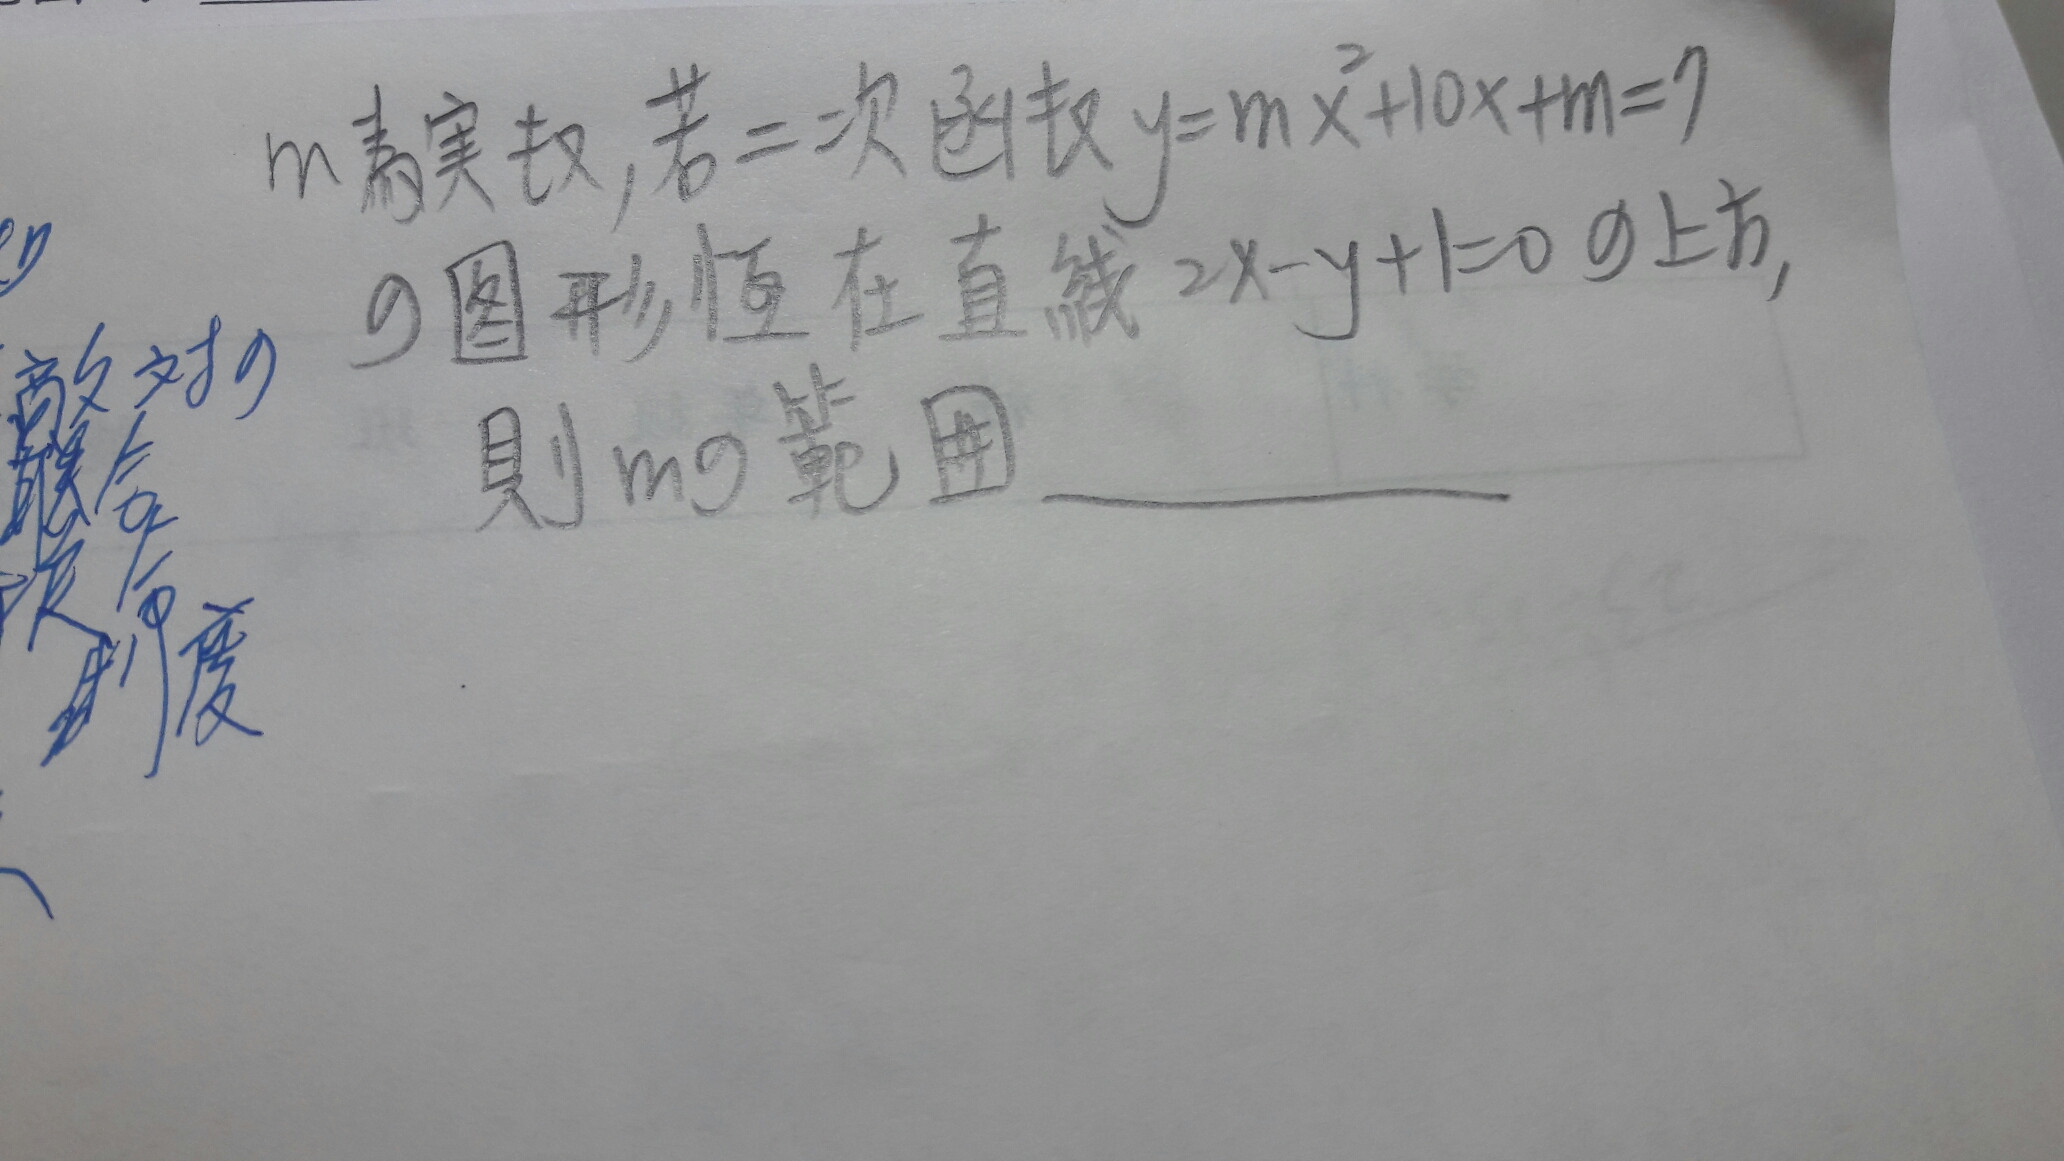 m為実数,若二次函数y=mx²+10x+m=7
の图形恆在直线2x-y+1=0の上方,
則mの範囲
敵対の